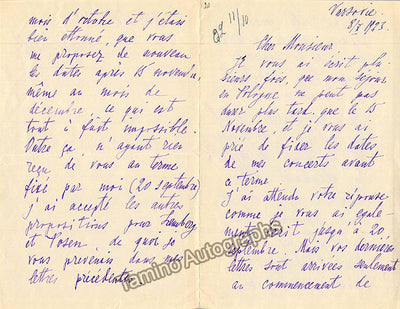 Varsovie
8/X 1923.
11/10
Cher Monsieur,
Je vous ai écrit plu-
sieurs fois, que mon séjour
en Pologne ne peut pas
durer plus tard, que le 15
Novembre, et je vous ai
prié de fixer les dates
de mes concerts avant
ce terme.
J'ai attendu votre réponse
comme je vous ai égale-
ment écrit jusqu'à 20
septembre. Mais vos dernières
lettres sont arrivées seulement
au commencement de
mois d'octobre et j'étais
bien étonné, que vous
me proposez de nouveau
les dates après 15 novembre,
même au mois de
décembre, ce qui est
tout à fait impossible.
Outre ça n'ayant rien
reçu de vous au terme
fixé par moi (20 septembre)
j'ai accepté les autres
propositions pour Lemberg
et Posen, de quoi je
vous prevenais dans mes
lettres précédentes.
Tamino Autographs